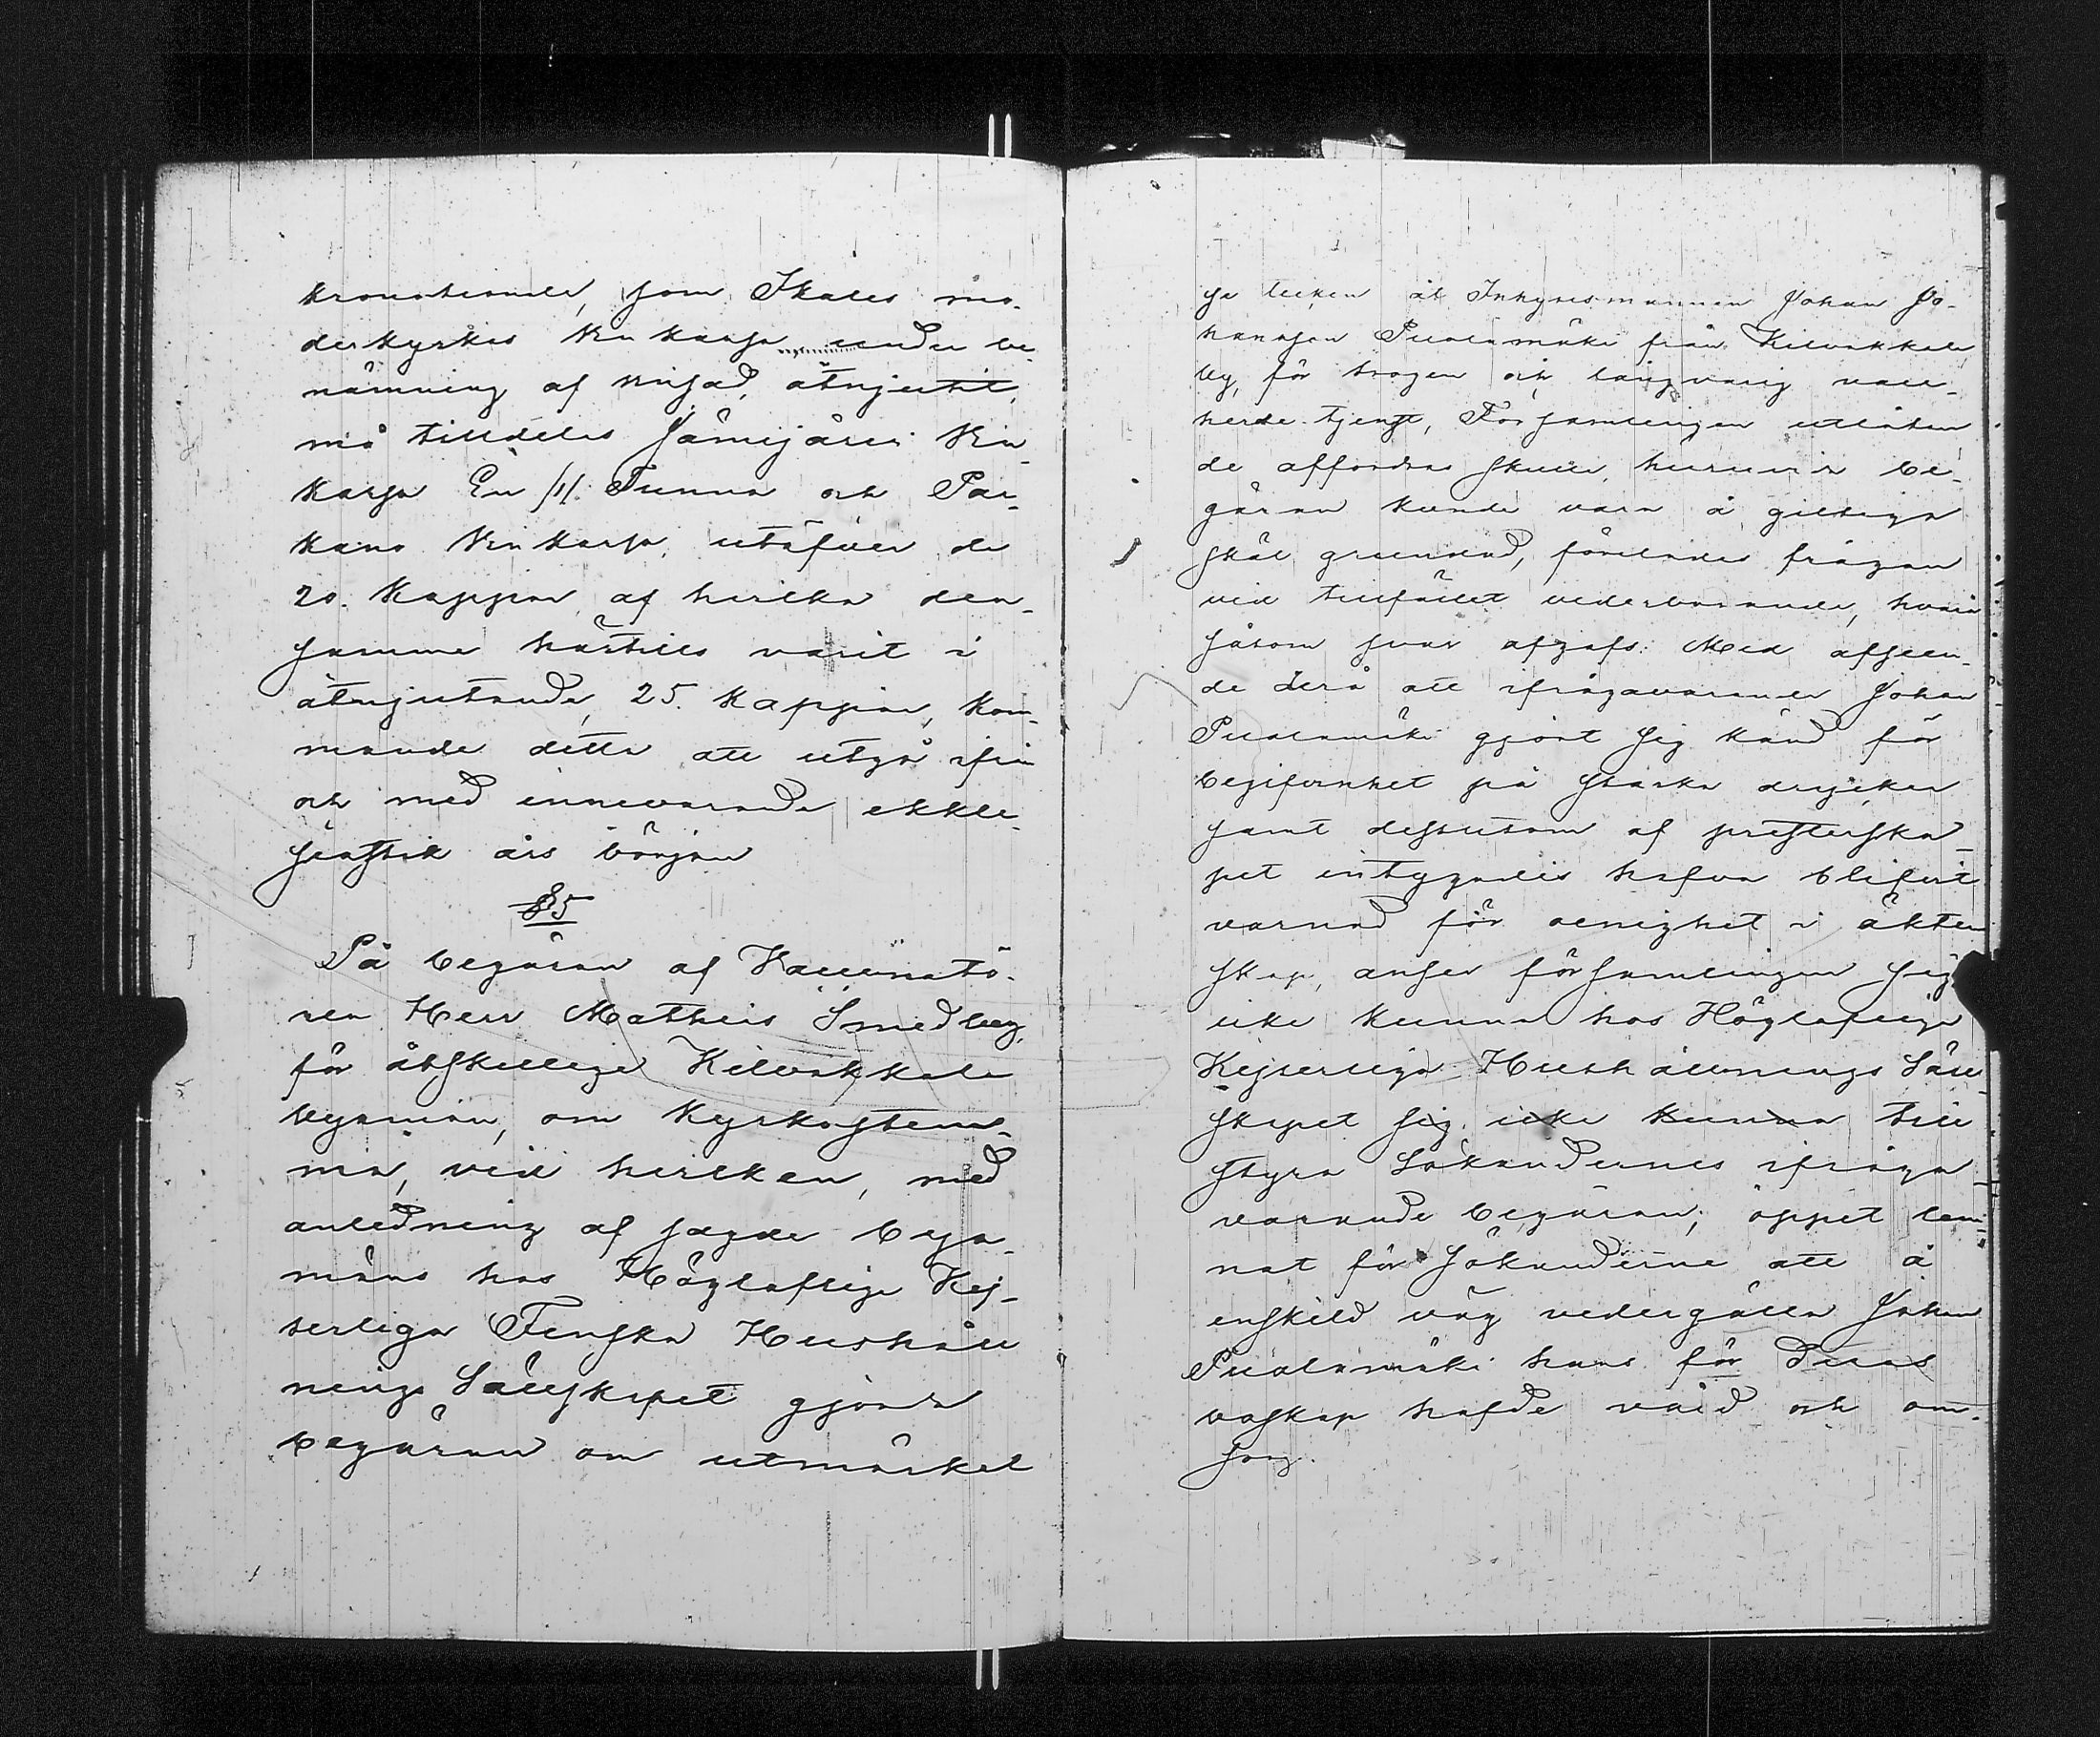 som Ikalis mo-
derkyrkas Vinkassa under be-
nämning af vinsäd, åtnjutit,
må tilldelas Jämijärvi Vin-
kassa En /1/ Tunna och Par-
kano Vinkassa, utöfver de
20. Kappar af hvilka den-
samma härtills varit i
åtnjutande, 25. Kappar, kom-
mande detta att utgå ifrån
och med innevarande ekkle-
siastik års början
§ 5
På begäran af Kallmatö-
ren Herr Mathias Smedberg,
för åtskillige Kilvakkala
byamän, om Kyrkostäm-
ma, vid hvilken, med
anledning af sagde bya-
mäns hos Högloflige Kej-
serliga Finska Hushåll
nings Sällskapet gjorda
begäran om utmärkel
se tecken åt Inhysesmannen Johan Jo-
hansson Puolamäki från Kilvakkala
by, för trogen och långvarig vall-
herde tjenst, Församlingen utlåtan
de affordras skulle, huruvida be-
gäran kunde vara å giltiga
skäl grundad, förelades frågan
vid tillfället vederbörande, hvar
såsom svar afgafs: Med afseen-
de derå att ifrågavarande Johan
Puolamäki gjort sig känd för
begifvenhet på starka drycker
samt dessutom af presterska-
pet intygades hafva blifvit
varnad för oenighet i äkten
skap, anser församlingen sig
icke kunna hos Höglofliga
Kejserliga Hushållnings Säll-
skapet sig icke kunna till
styra Sökandernes ifråga
varande begäran; öppet lem-
nat för Sökanderne att å
enskild väg vedergälla Johan
Puolamäki hans för deras
boskap hafde vård och om-
sorg.